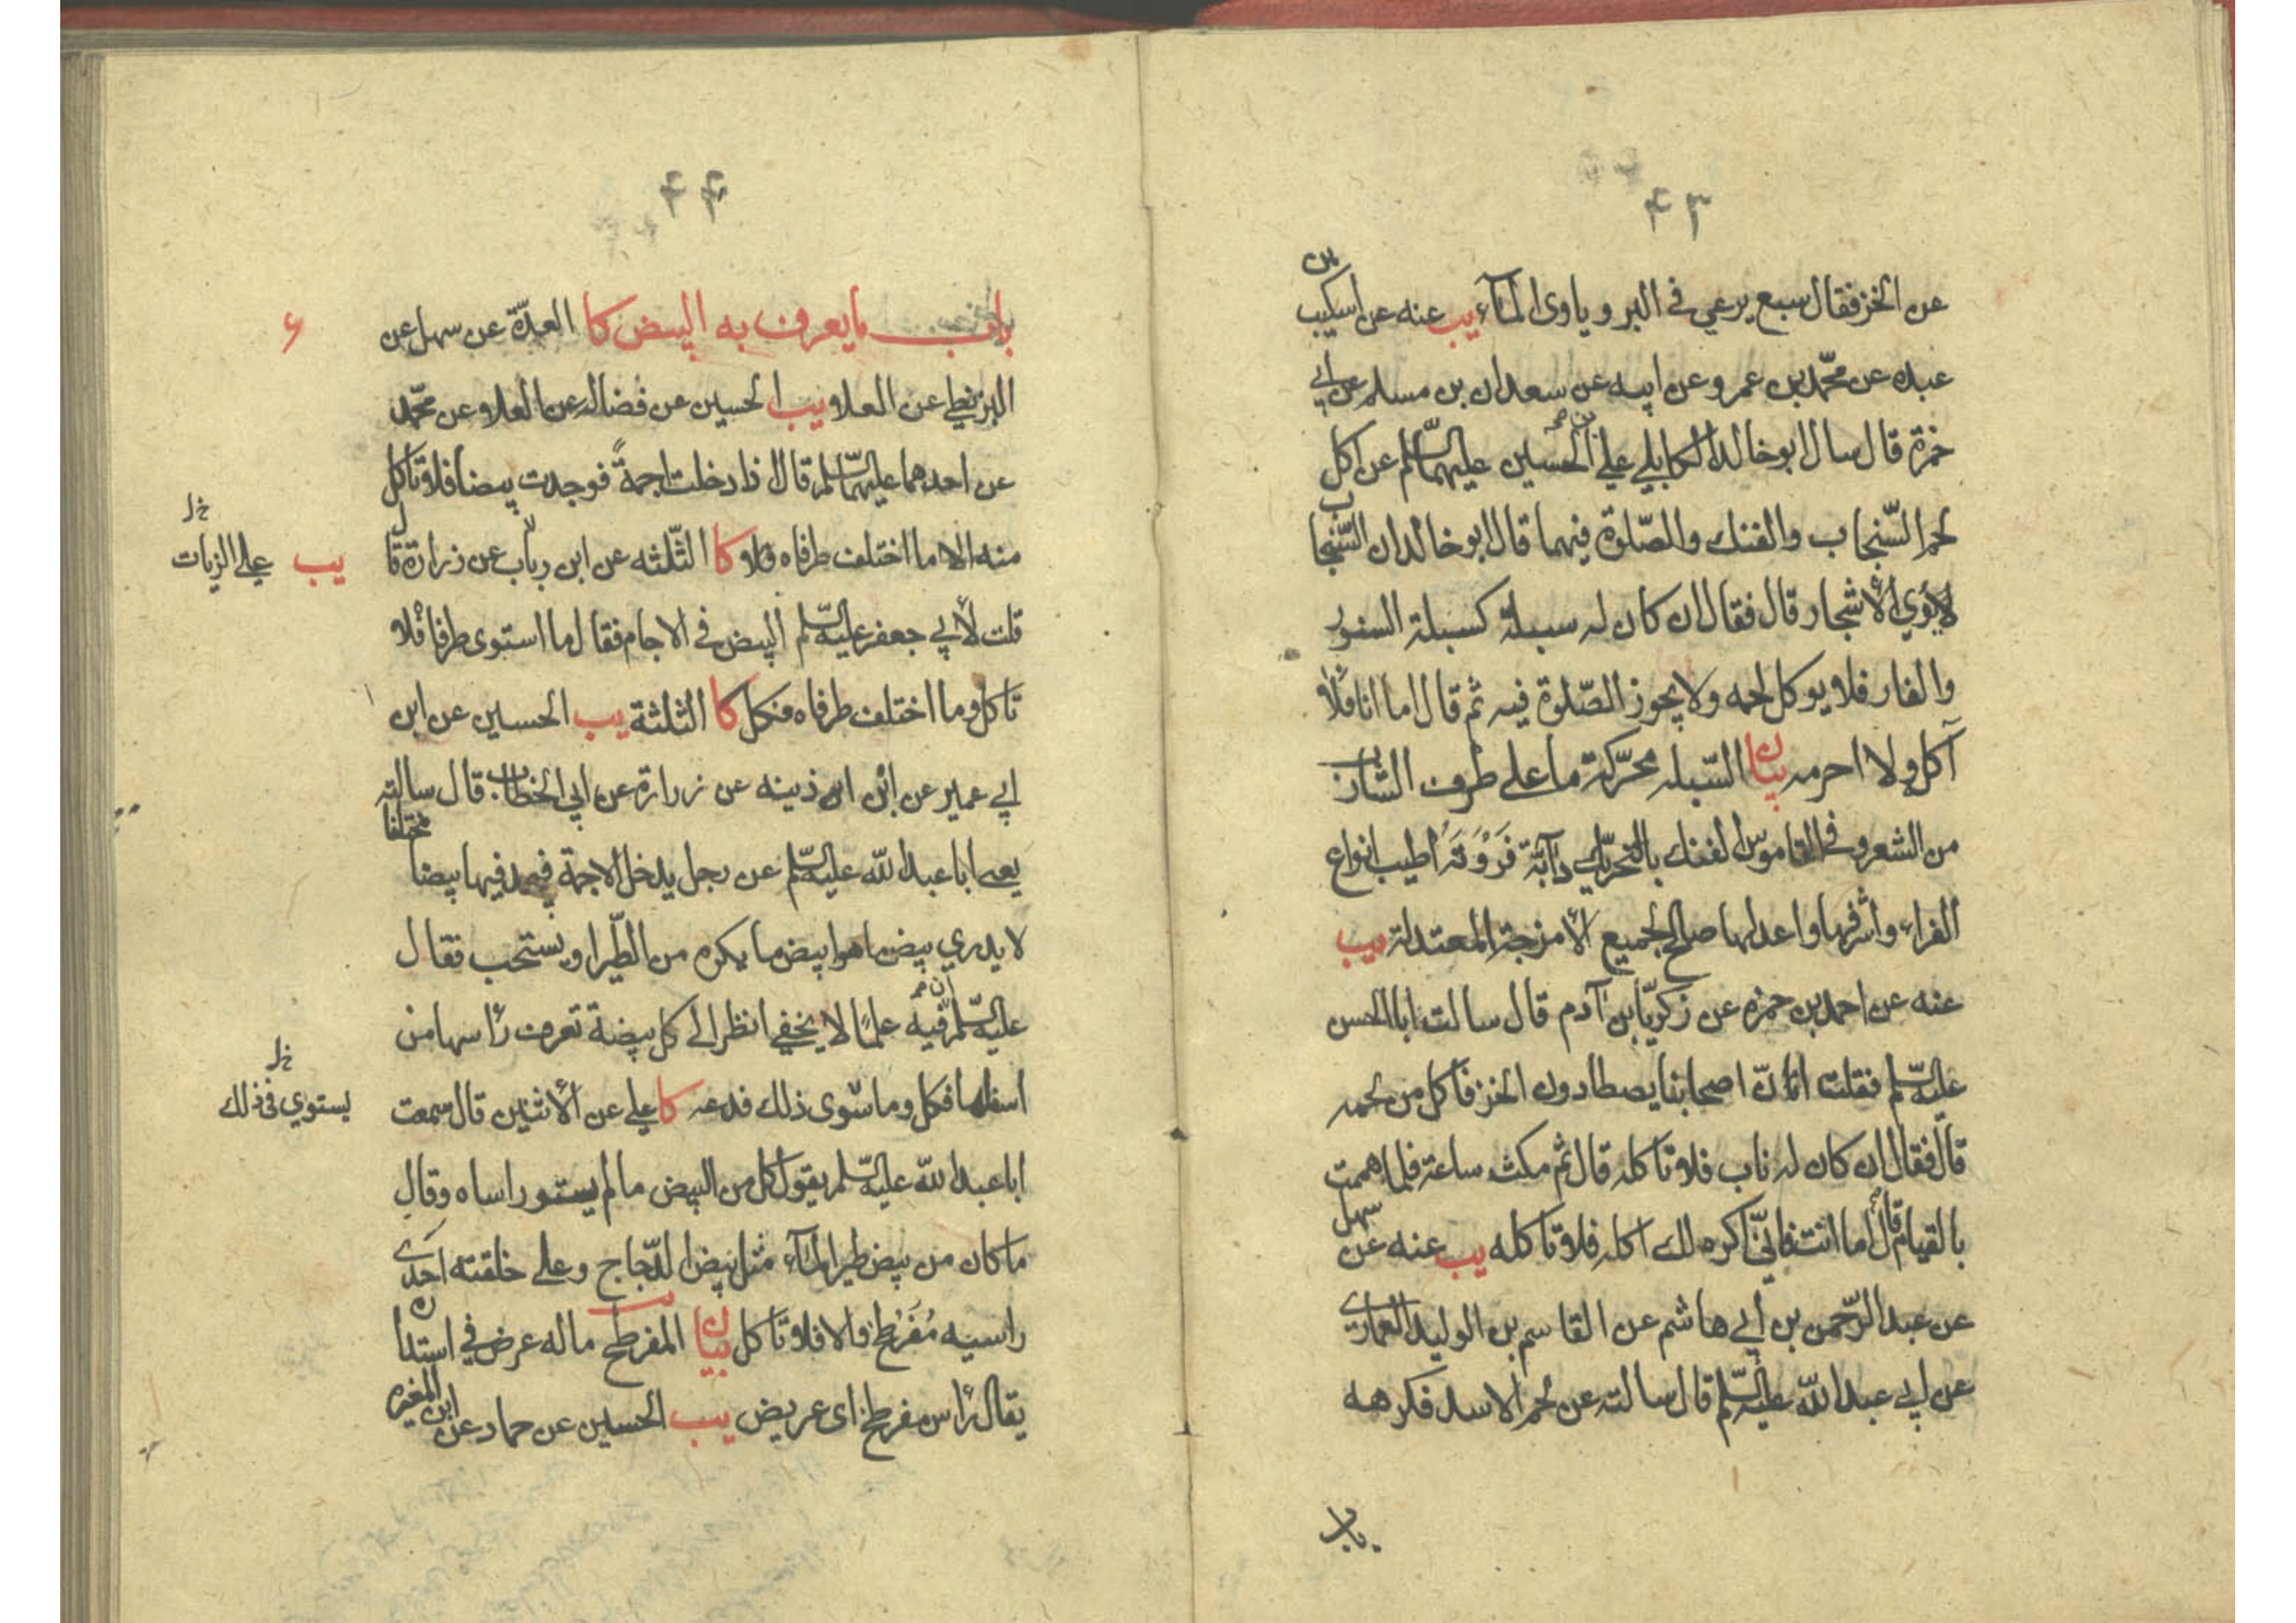 ۴۳
عن الخز فقال سبع يرعي في البر وياوى الماء يب عنه عن اسكيب بن
عبده عن محمّد بن عمرو عن ابيه عن سعدان بن مسلم عن ابي
حمزة قال سال ابو خالد الكابلي علي بن الحسين عليهما السّلم عن اكل
لحم السّنجاب والفنك والصّلوة فيهما قال ابو خالد ان السّنجاب
لا يؤي الأشجار قال فقال ان كان له سبلة كسبلة السنور
والفار فلا يوكل لحمه ولا يجوز الصّلوة فيه ثم قال اما انا فلا
آكل ولا احرمه بيان السّبله محرّكة ما على طرف الشارب
من الشعر وفي القاموس الفنك بالتحريك دآبّة فَرْوَتُهَا اطيب انواع
الفراء واشرفها واعدلها صالح لجميع الأمزجة المعتدلة يب
عنه عن احمد بن حمزه عن زكريّا بن آدم قال سالت ابا الحسن
عليه السّلم فقلت انّ اصحابنا يصطادون الخز فآكل من لحمه
قال فقال ان كان له ناب فلا تاكله قال ثم مكث ساعة فلما هممت
بالقيام قال اما انت فانّي اكره لك اكله فلا تاكله يب عنه عن سهل
عن عبد الرّحمن بن أبي هاشم عن القاسم بن الوليد العماري
عن ابي عبد اللّه عليه السّلم قال سالته عن لحم الاسد فكرهه
باب
۴۴
باب ما يعرف به البيض كا العدّة عن سهل عن
البزنطي عن العلا و يب الحسين عن فضاله عن العلا عن محمّد
عن احدهما عليهما السّلم قال اذا دخلت اجمةً فوجدت بيضا فلا تاكل
منه الا ما اختلف طرفاه كا الثّلثه عن ابن رياب عن زرارة قال
يب علي الزيات خ ل
قلت لأبي جعفر عليه السّلم البيض في الاجام فقال ما استوى طرفاه فلا
تاكل وما اختلف طرفاه فكل كا الثلثة يب الحسين عن ابن
ابي عمير عن ابن اذينه عن زرارة عن ابي الخطاب قال سالته
يعني ابا عبد اللّه عليه السّلم عن رجل يدخل الاجمة فيجد فيها بيضا مختلفا
لا يدري بيض ما هو ابيض ما يكره من الطّير او يستحب فقال
عليه السّلم ان فيه علمًا لا يخفي انظر الي كل بيضة تعرف رأسها من
اسفلها فكل وما سوى ذلك فدعه كا علي عن الأثنين قال سمعت
يستوي في ذلك خ ل
ابا عبد اللّه عليه السّلم يقول كل من البيض ما لم يستو راساه وقال
ما كان من بيض طير الماء مثل بيض الدّجاج وعلى خلقته احدى
راسيه مُفَرطح والا فلا تاكل بيان المفرطح ما له عرض في استدارة
يقال رأس مفرطح اى عريض يب الحسين عن حماد عن ابن المغيره